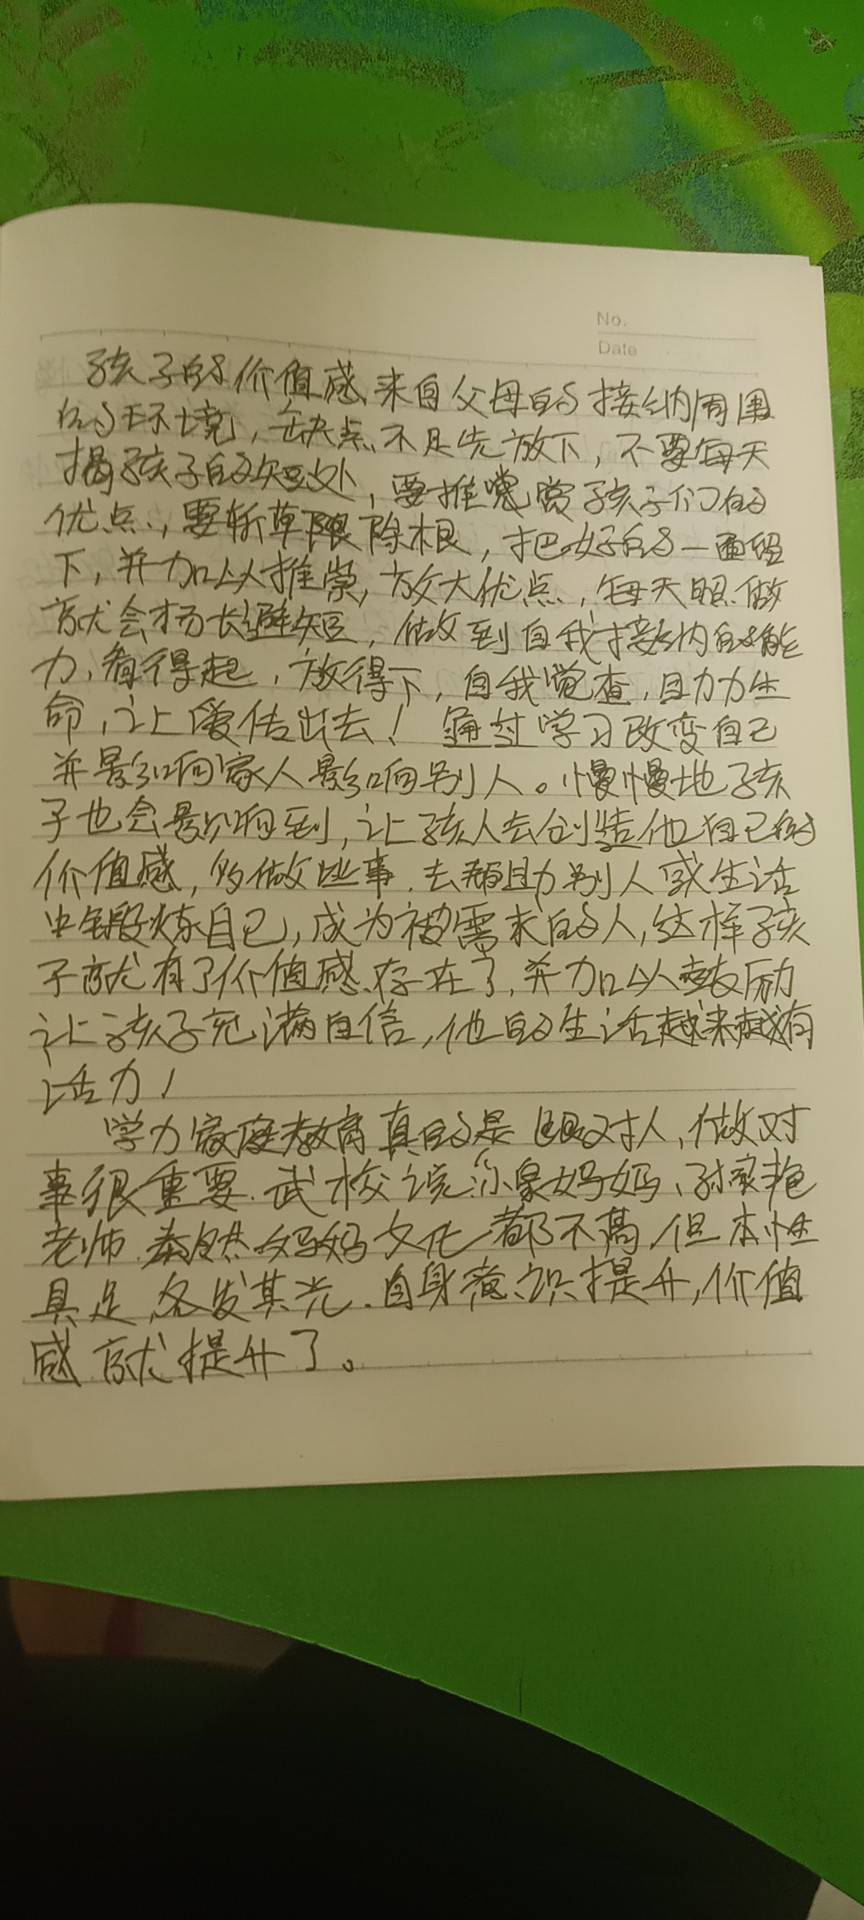 No.
Date
孩子的价值感,来自父母的接纳周围
的环境,缺点、不足先放下,不要每天
揭孩子的短处,要推赏孩子们的
优点,要斩草除根,把好的一面留
下,并加以推崇,放大优点,每天照做
就会扬长避短,做到自我接纳的能
力,看得起,放得下,自我觉查,自力力生
命,让爱传出去!通过学习改变自己
并影响家人影响别人。慢慢地孩
子也会影响到,让孩人去创造他自己的
价值感,的做些事,去帮助别人或生活
中锻炼自己,成为被需求的人,这样孩
子就有了价值感存在了,并加以鼓励
让孩子充满自信,他的生活越来越有
活力!
学力家庭教育真的是跟对人,做对
事很重要,武校说你象妈妈、
老师,虽然妈妈文化都不高,但本性
具足,各发其光,自身意识提升,价值
感就提升了。